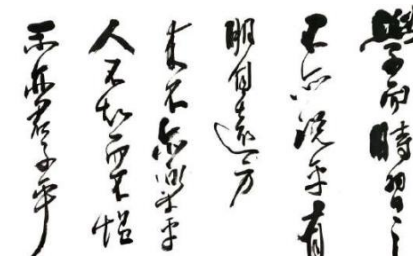 學而時習之
不亦説乎有
朋自遠方
來不亦樂乎
人不知而不愠
不亦君子乎